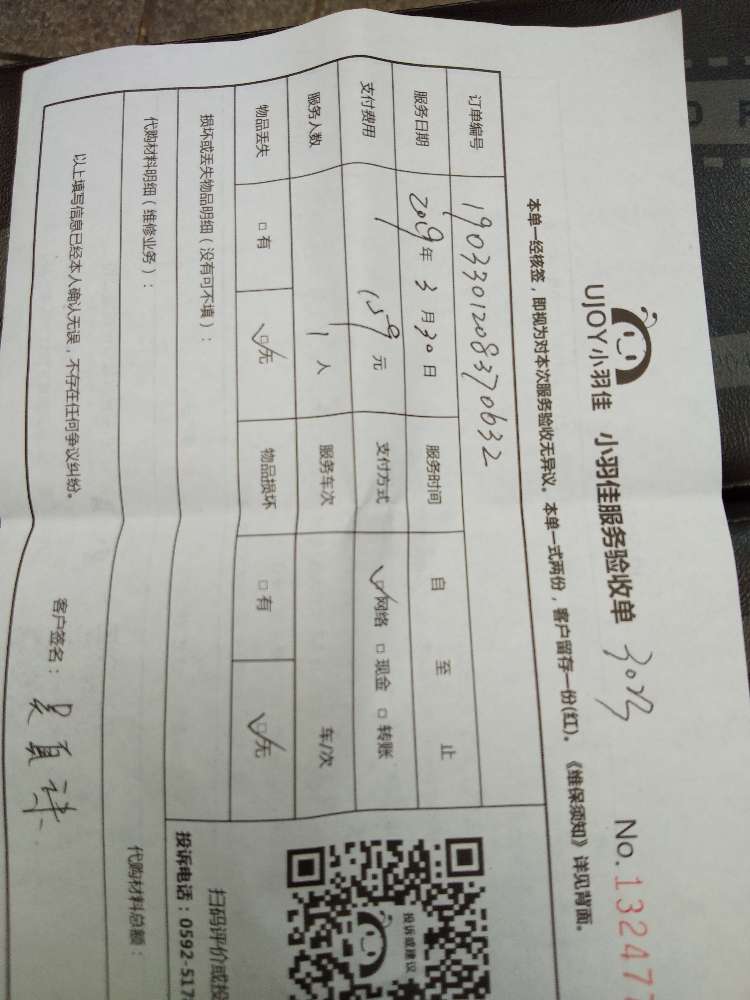 UJOY小羽佳 小羽佳服务验收单 No.13247
本单一经核签，即视为对本次服务验收无异议。本单一式两份，客户留存一份(红)。《维保须知》详见背面。
订单编号 1903301208370632
服务日期 2019年3月30日 服务时间 自 至 止
支付费用 159元 支付方式 ☑网络 □现金 □转账
服务人数 1人 服务车次 车/次
物品丢失 □有 ☑无 物品损坏 □有 ☑无
损坏或丢失物品明细（没有可不填）：
代购材料明细（维修业务）： 代购材料总额：
以上填写信息已经本人确认无误，不存在任何争议纠纷。 客户签名：
投诉或建议
扫码评价或投
投诉电话：0592-517